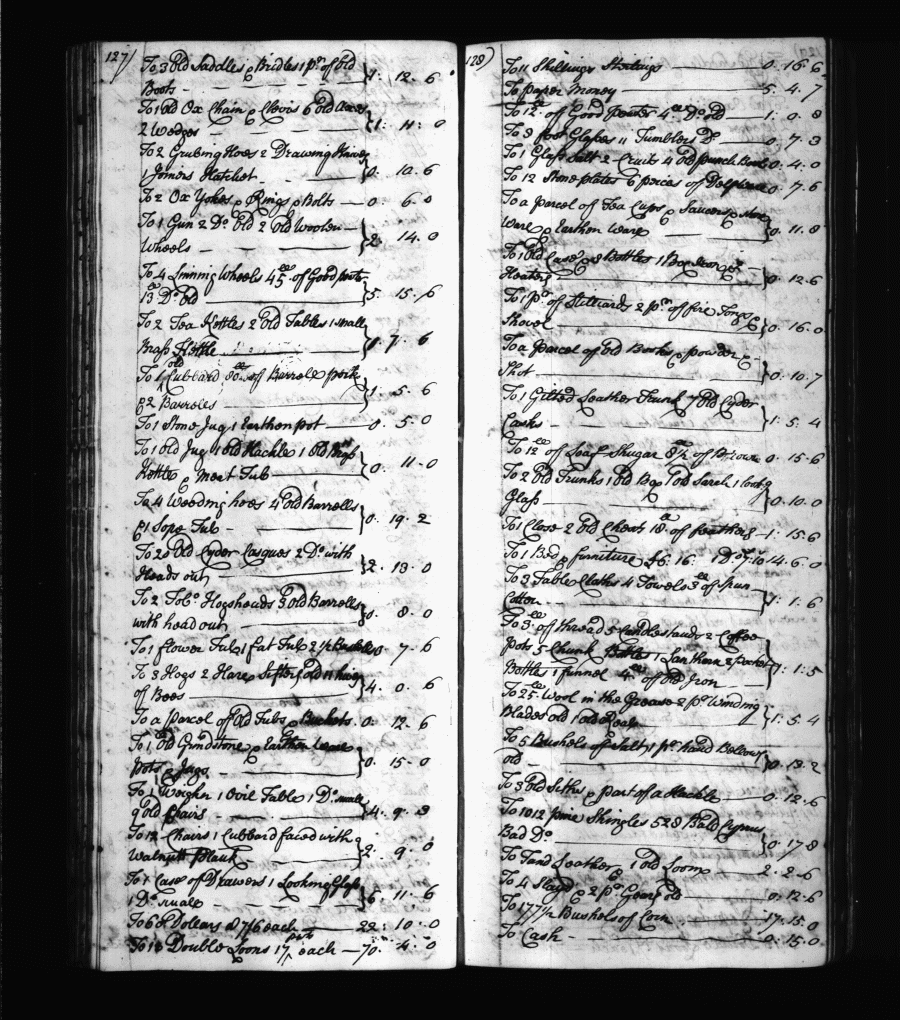 127)
To 3 Old Saddles & Bridles 1 pr. of old
Boots - 1. 12. 6
To 1 Old Ox Chain & Clevis 6 old Axes
2 Wedges - 1: 11: 0
To 2 Grubing Hoes 2 Drawing Knives
1 Joiners Hatchet 0. 10. 6
To 2 Ox Yokes & Rings & Bolts — 0. 6. 0
To 1 Gun 2 Do. Old 2 Old Woolen
Wheels — 2. 14. 0
To 4 Linning Wheels 45 of Good
13 Do. Old 5. 15. 6
To 2 Tea Kettles 2 old Tables 1 small
Brass Kettle 7. 6
To 1 old Cubbard, of Barrell pork
& 2 Barreles 1. 5. 6
To 1 Stone Jug 1 Earthen pot — 0. 5. 0
To 1 Old Jug 1 Old Hackle 1 Old Brass
Kettle & Meat Tub 0. 11. 0
To 4 Weeding hoes 4 old Barrells
& 1 Sope Tub - 0. 19. 2
To 20 Old Cyder Casques 2 Do. with
Heads out 2. 13. 0
To 2 Tobo. Hogsheads 3 Old Barrells
with head out 0. 8. 0
To 1 flower Tub 1 fat Tub 2 1/2 Bushels 7. 6
To 3 Hogs 2 Hare Sifters old 11 hives
of Bees 4. 0. 6
To a parcel of Old Tubs & Buckets. 0. 12. 6
To 1 Old Grindstone & Earthen Ware
pots & Jugs — 0. 15. 0
To 1 Weighn 1 Ovil Table 1 Do. small
9 old Chairs — 4. 9. 3
To 12 Chairs 1 Cubbard faced with
Walnutt plank 2. 9. 0
To 1 Case of Drawers 1 Looking Glass
1 Do. small 6. 11. 6
To 60 Dollars @ 7/6 each 22: 10. 0
To 18 Double Loons 17 pwt each — 70. 4. 0
128)
To 11 Shillings Sterling — 0. 16 6
To paper Money — 5. 4. 7
To 12 of Good pewter 4 Do. old — 1: 0. 8
To 3 foot Glasses 11 Tumblers Do — 0. 7. 3
To 1 Glass Salt 2 Cruits 4 Old punch Bowls 0: 4. 0
To 12 Stone plates 6 peices of Delphware 0. 7. 6
To a parcel of Tea Cups & Saucers & Stone
Ware & Earthen Ware 0. 11. 8
To 1 Old Case & 8 Bottles 1 Box Iron &
Heaters 0. 12. 6
To 1 pr. of Stilliards 2 pr. of fire Tongs &
Shovel 0. 16. 0
To a parcel of old Books & powder &
Shot 0. 10. 7
To 1 Gilted Leather Trunk 7 Old Cyder
Casks - 1: 5. 4
To 12 of Loaf Shugar 8 1/2 of Brown 0. 15. 6
To 2 Old Trunks 1 Old Box 1 old
Glass 0. 10. 0
To 1 Close 2 Old Chests 18 of feathers — 1: 15. 6
To 1 Bed & furniture £6: 16: 1 Do. 14. 6. 0
To 3 Table Cloths 4 Towels 3 of Spun
Cotton — 1: 1. 6
To 3 of thread 5 Candlestands 2 Coffee
pots 5 Chunk Bottles 1 Lanthorn 2 pocket
Bottles 1 funnel 4 of old Iron 1: 1: 5
To 25 Wool in the Grease 2 pr. Winding
Blades old 1 old Reale 1: 5. 4
To 5 Bushels of Salt, 1 pr. hand Bellows
old - 0. 13. 2
To 3 Old Siths & part of a Hackle 0. 12. 6
To 1012 pine Shingles 528 Bald Cyprus
Bad Do. 0. 17 8
To Tand Leather & 1 old Loom 2. 2. 6
To 4 Slays & 2 pr. Gears old 0: 12. 6
To 177 1/2 Bushels of Corn 17. 15. 0
To Cash — 0: 15. 0